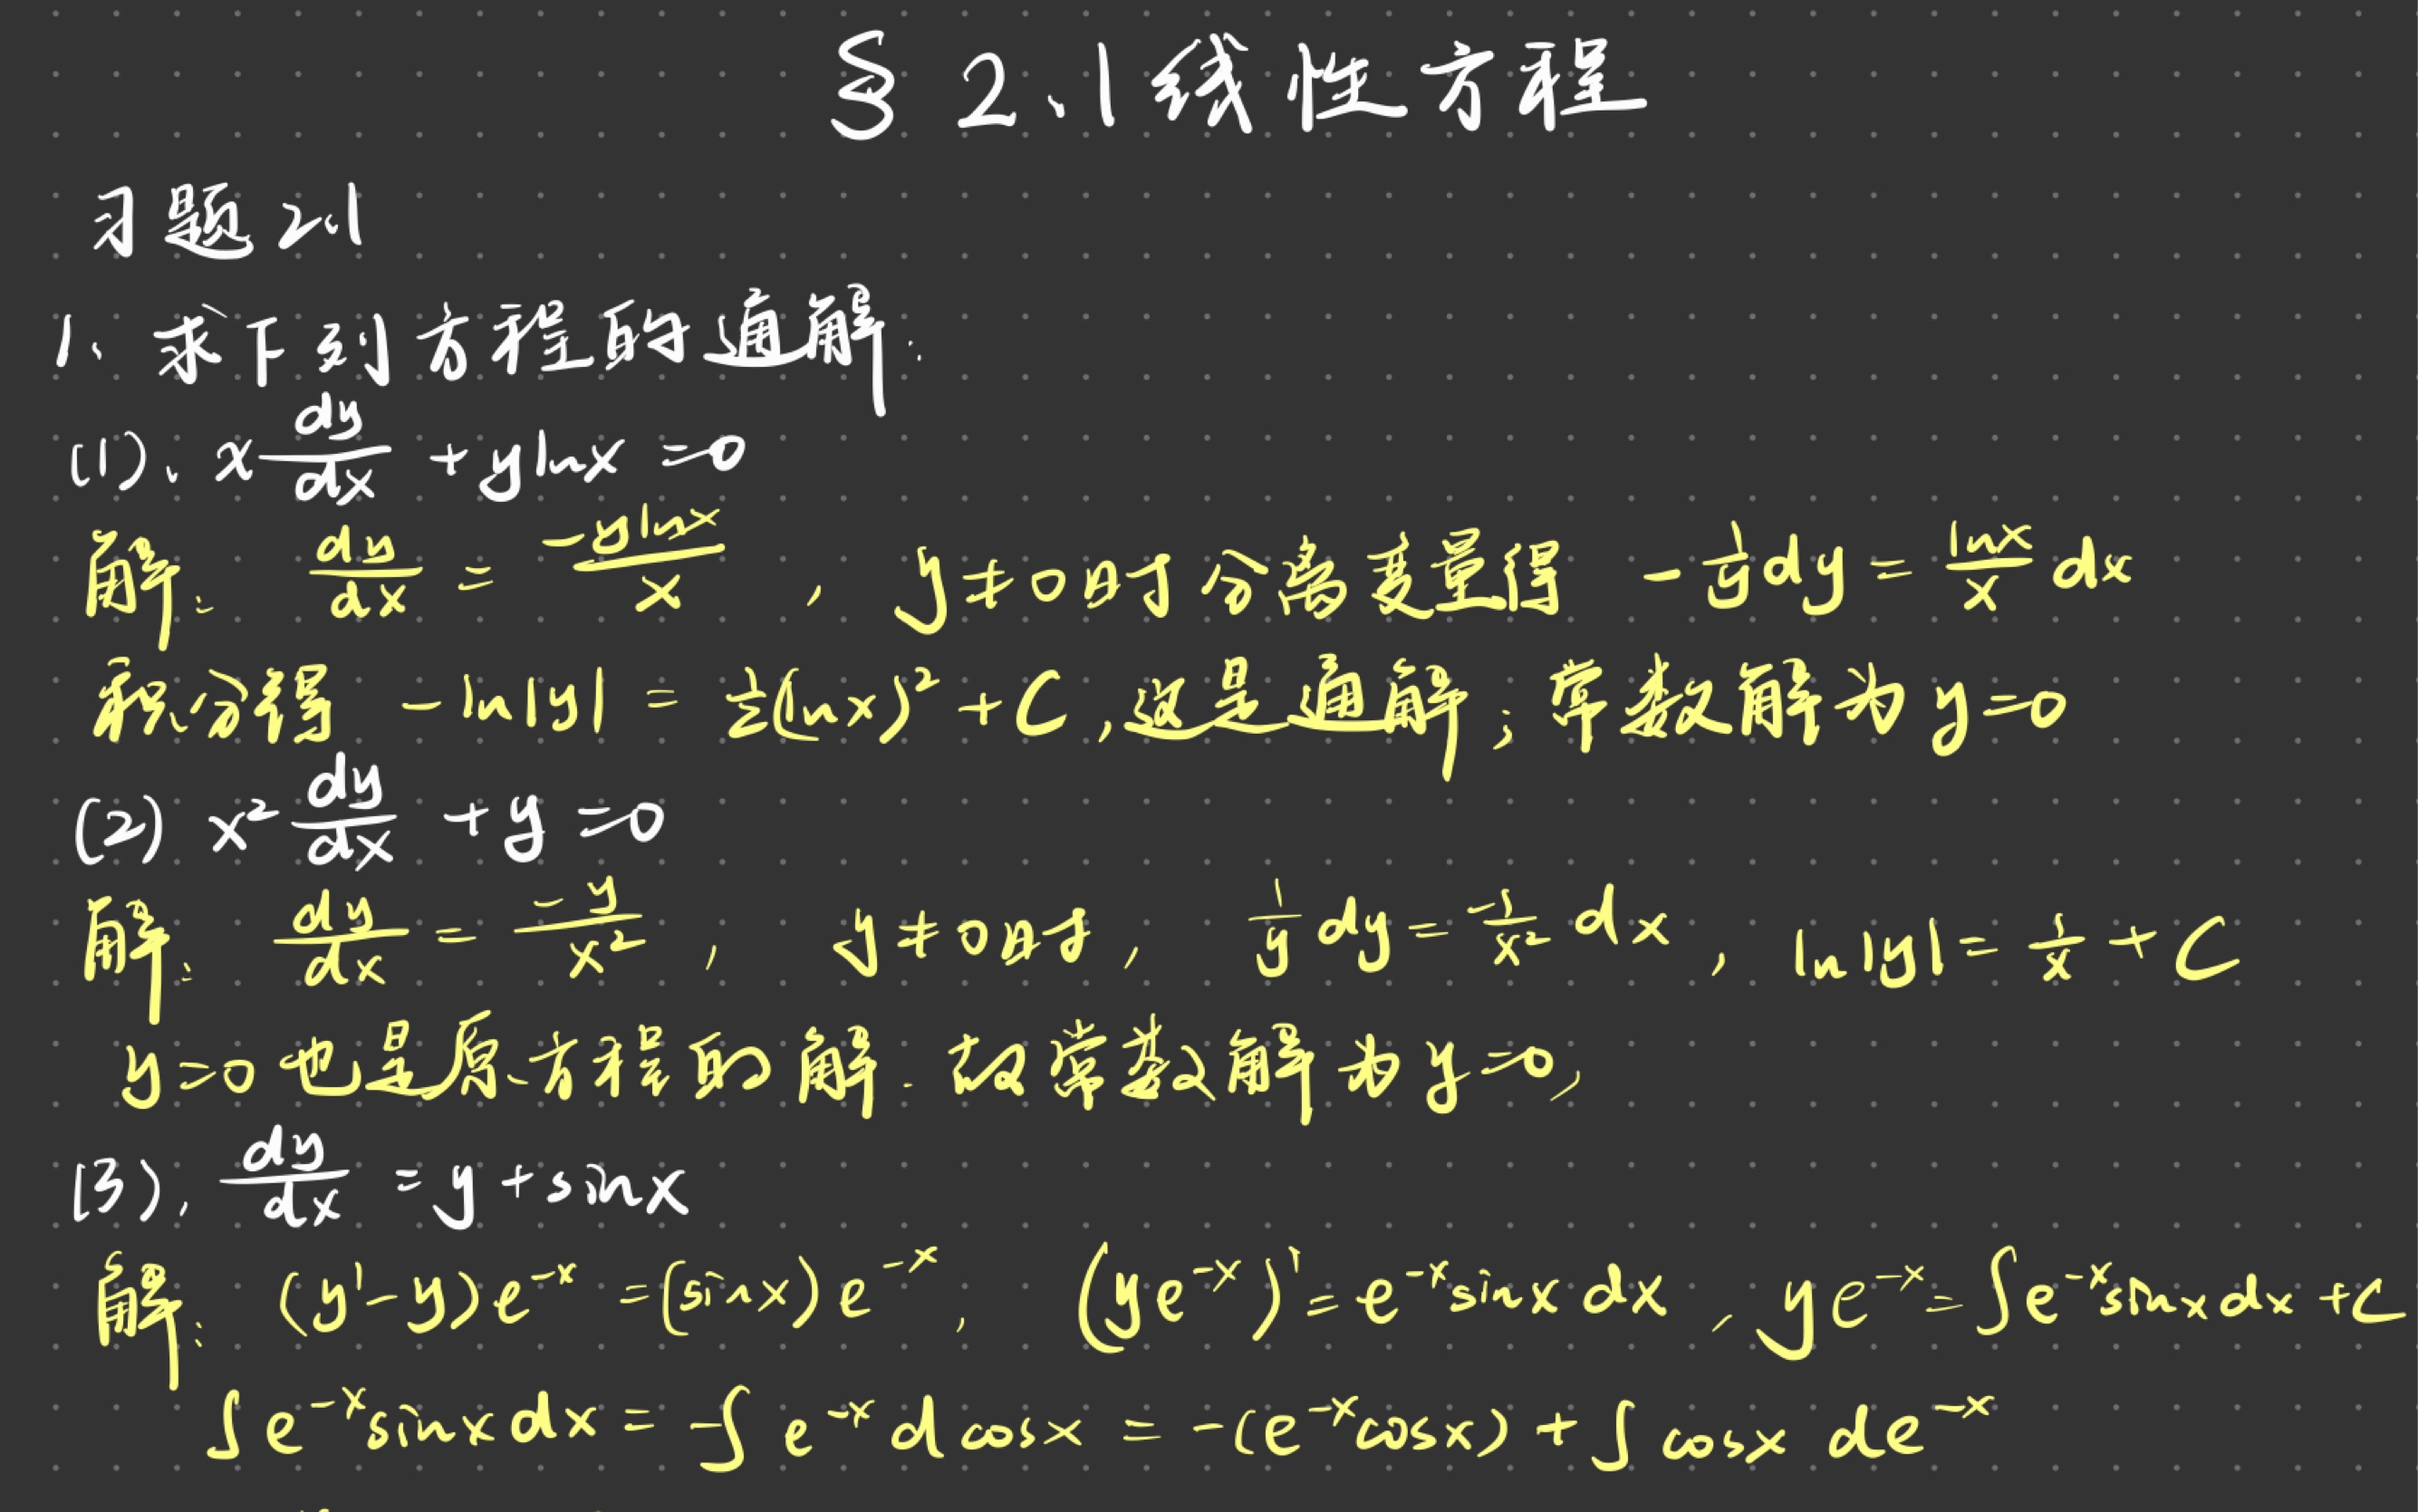 § 2.1 线性方程
习题 2.1
1、求下列方程的通解:
(1)、x dy/dx + y ln x = 0
解: dy/dx = -y ln x / x , y≠0时分离变量得 -1/y dy = ln x / x dx
积分得 -ln|y| = ½(ln x)² + C, 这是通解; 常数解为 y=0
(2) x² dy/dx + y = 0
解: dy/dx = -y/x² , y≠0时, 1/y dy = -1/x² dx , ln|y| = 1/x + C
y=0 也是原方程的解. 故常数解为 y=0,
(3), dy/dx = y + sin x
解: (y'-y)e^{-x} = (sin x)e^{-x} , (ye^{-x})' = e^{-x} sin x dx , ye^{-x} = ∫e^{-x} sin x dx + C
∫e^{-x} sin x dx = -∫e^{-x} d cos x = -(e^{-x} cos x) + ∫cos x de^{-x}